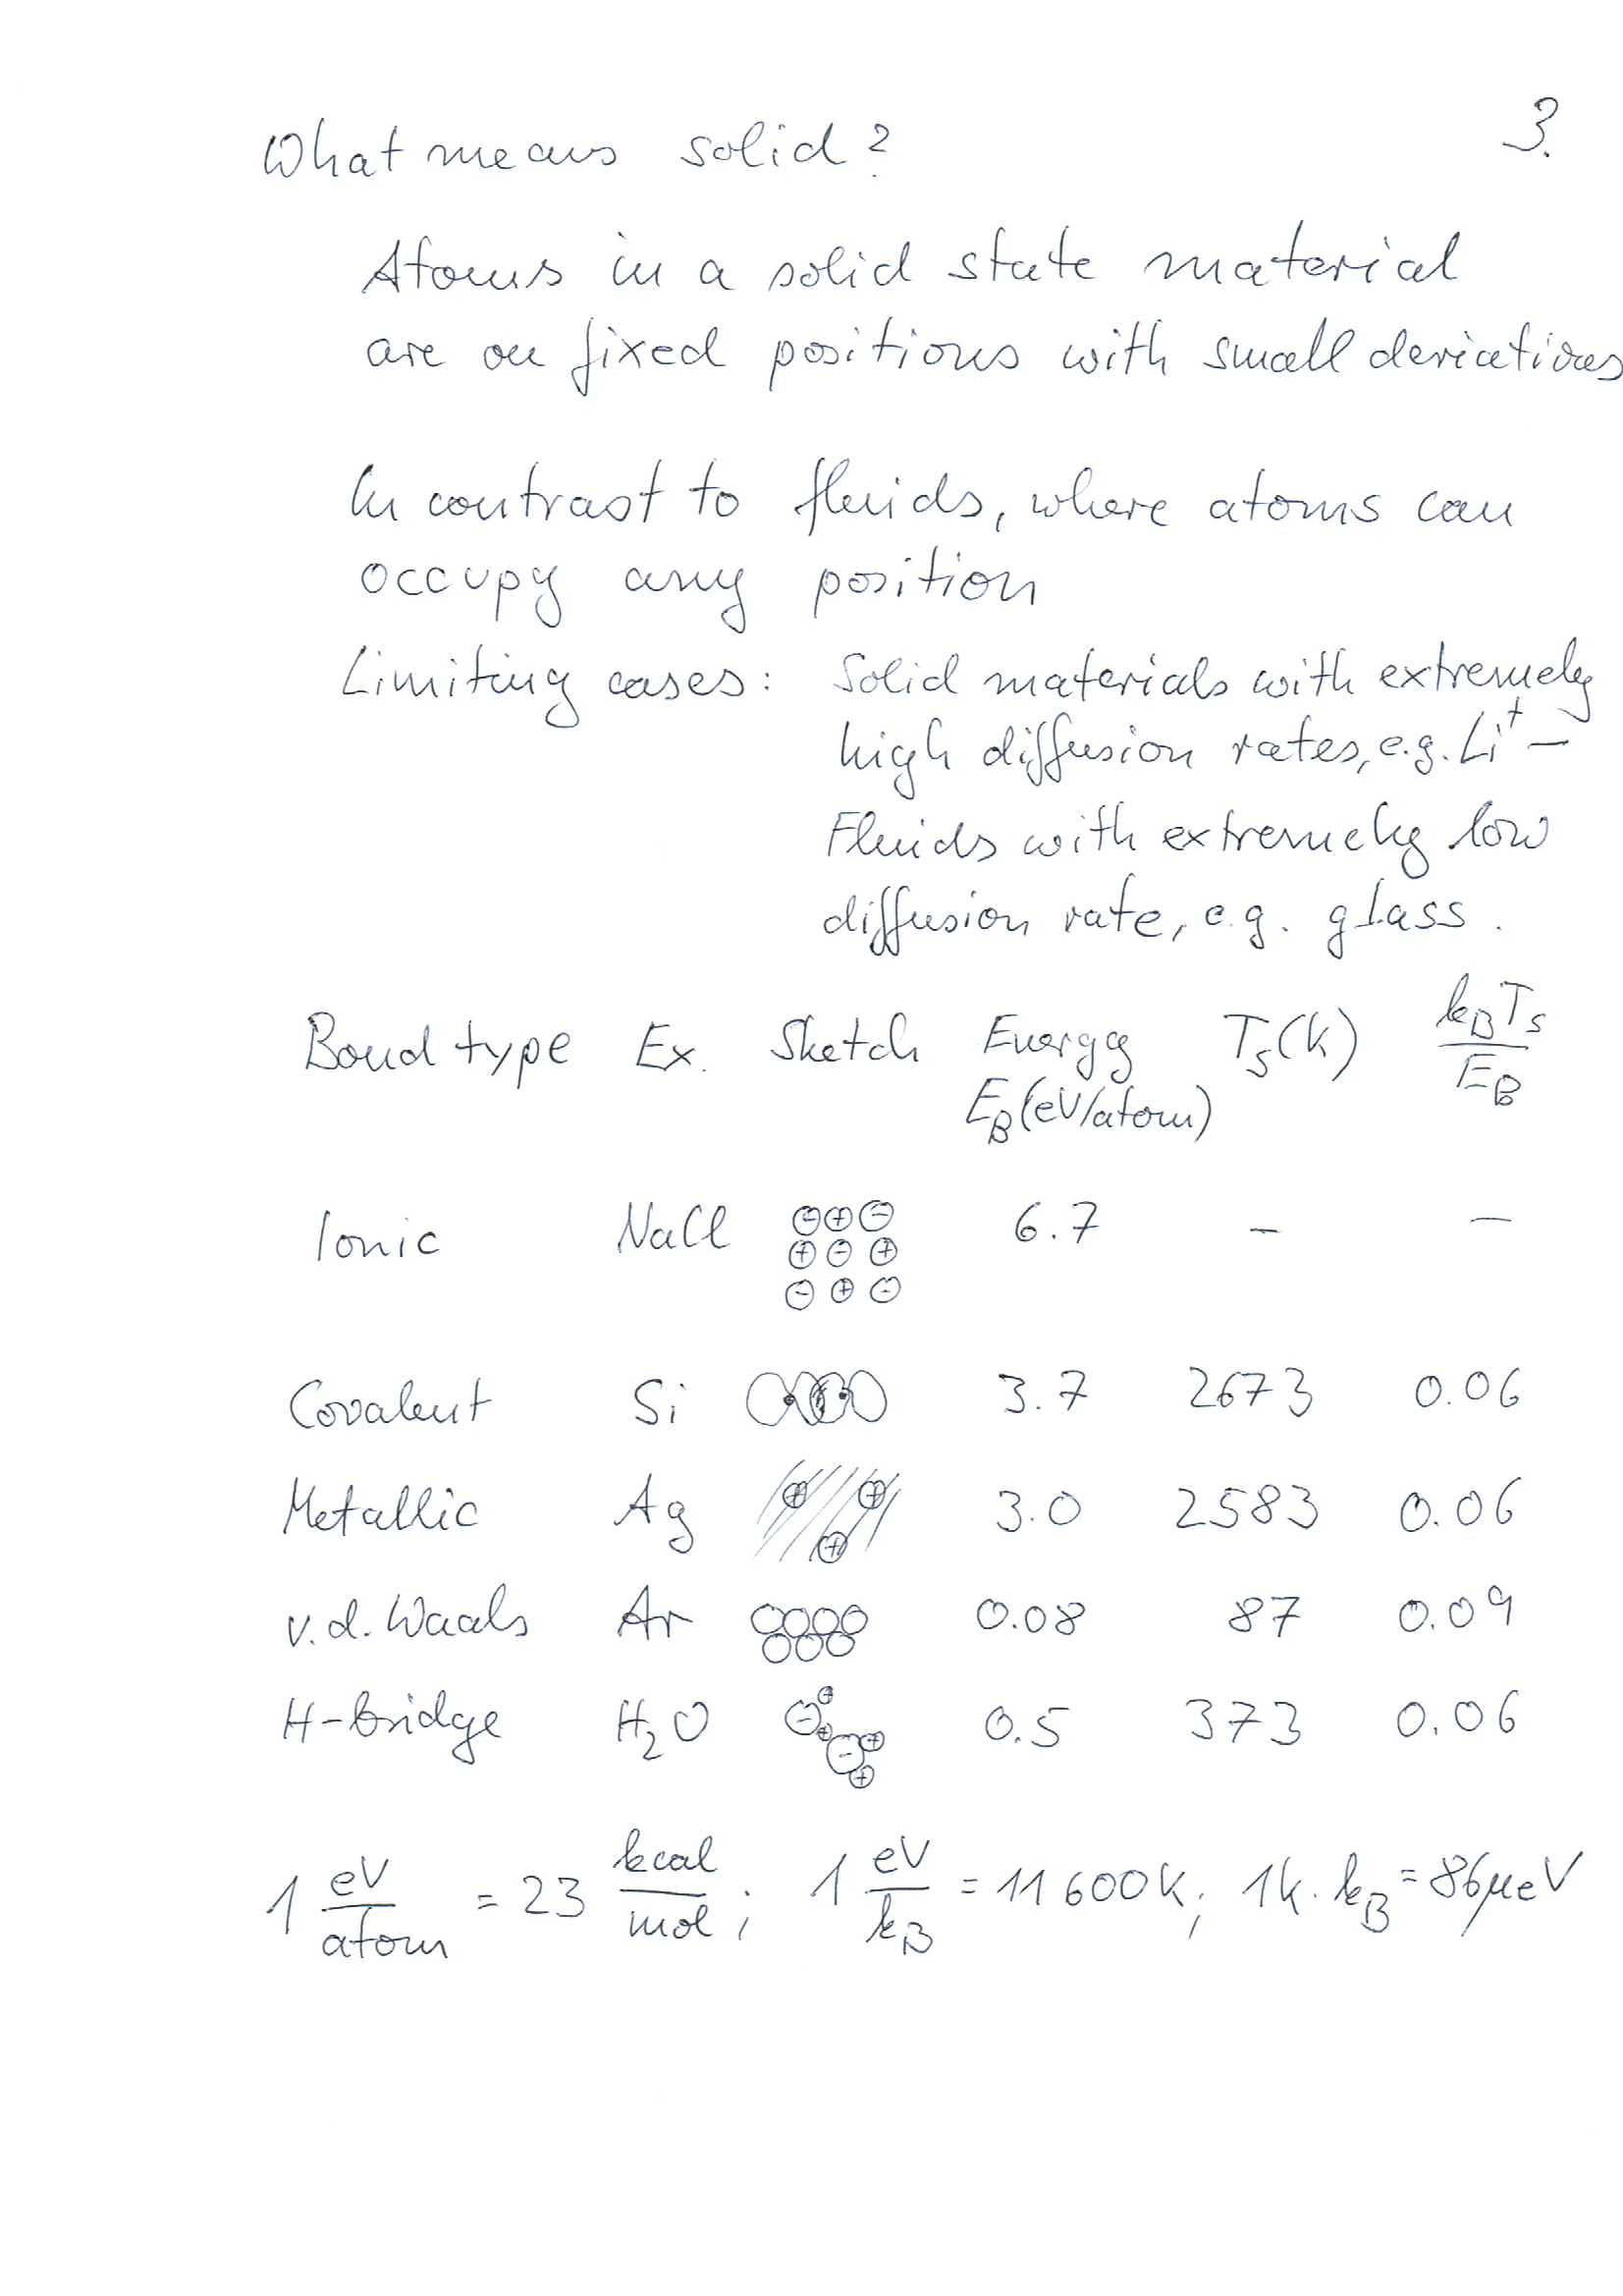 3.
What means solid?
Atoms in a solid state material
are on fixed positions with small deviations
In contrast to fluids, where atoms can
occupy any position
Limiting cases: Solid materials with extremely
high diffusion rates, e.g. Li⁺ –
Fluids with extremely low
diffusion rate, e.g. glass.
Bond type Ex. Sketch Energy T_S(K) k_B T_S / E_B
E_B(eV/atom)
Ionic NaCl ⊖ ⊕ ⊖ 6.7 – –
⊕ ⊖ ⊕
⊖ ⊕ ⊖
Covalent Si 3.7 2673 0.06
Metallic Ag + + + 3.0 2583 0.06
v.d. Waals Ar 0.08 87 0.09
H-bridge H₂O - + + - + + 0.5 373 0.06
1 eV/atom = 23 kcal/mol; 1 eV/k_B = 11600K; 1K·k_B = 86μeV